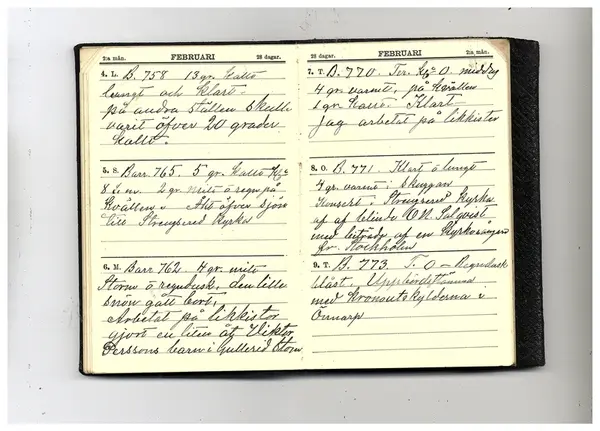 2:a mån. FEBRUARI 28 dagar.
4. L. B. 758 13 gr. kallt
lungt och klart.
på andra ställen skulle
varit öfver 20 grader
kallt.
5. S. Barr. 765. 5 gr. kallt Kl.
8 f.m. 2 gr. milt ö regn på
kvällen. Åkt öfver sjön
till Strengsered Kyrka
6. M. Barr 762. 4 gr. milt
Storm ö regnbusk, den lille
snön gått bort,
Arbetat på likkistor
gjort en liten åt Viktor
Perssons barn i Gullered Storm
28 dagar. FEBRUARI 2:a mån.
7. T. B. 770. Ter. kl. 0. middag
4 gr. varmt, på kvällen
1 gr. kallt. Klart
Jag arbetat på likkistor
8. O. B. 771. Klart ö lungt
4 gr. varmt i skuggan
Konsert i Strengsered Kyrka
af af blinde
med biträde af en Kyrkosångare
fr. Stockholm
9. T. B. 773. T. 0 – Regndask
blåst. Uppbördstämma
med kronoutskylderna i
Önnarp